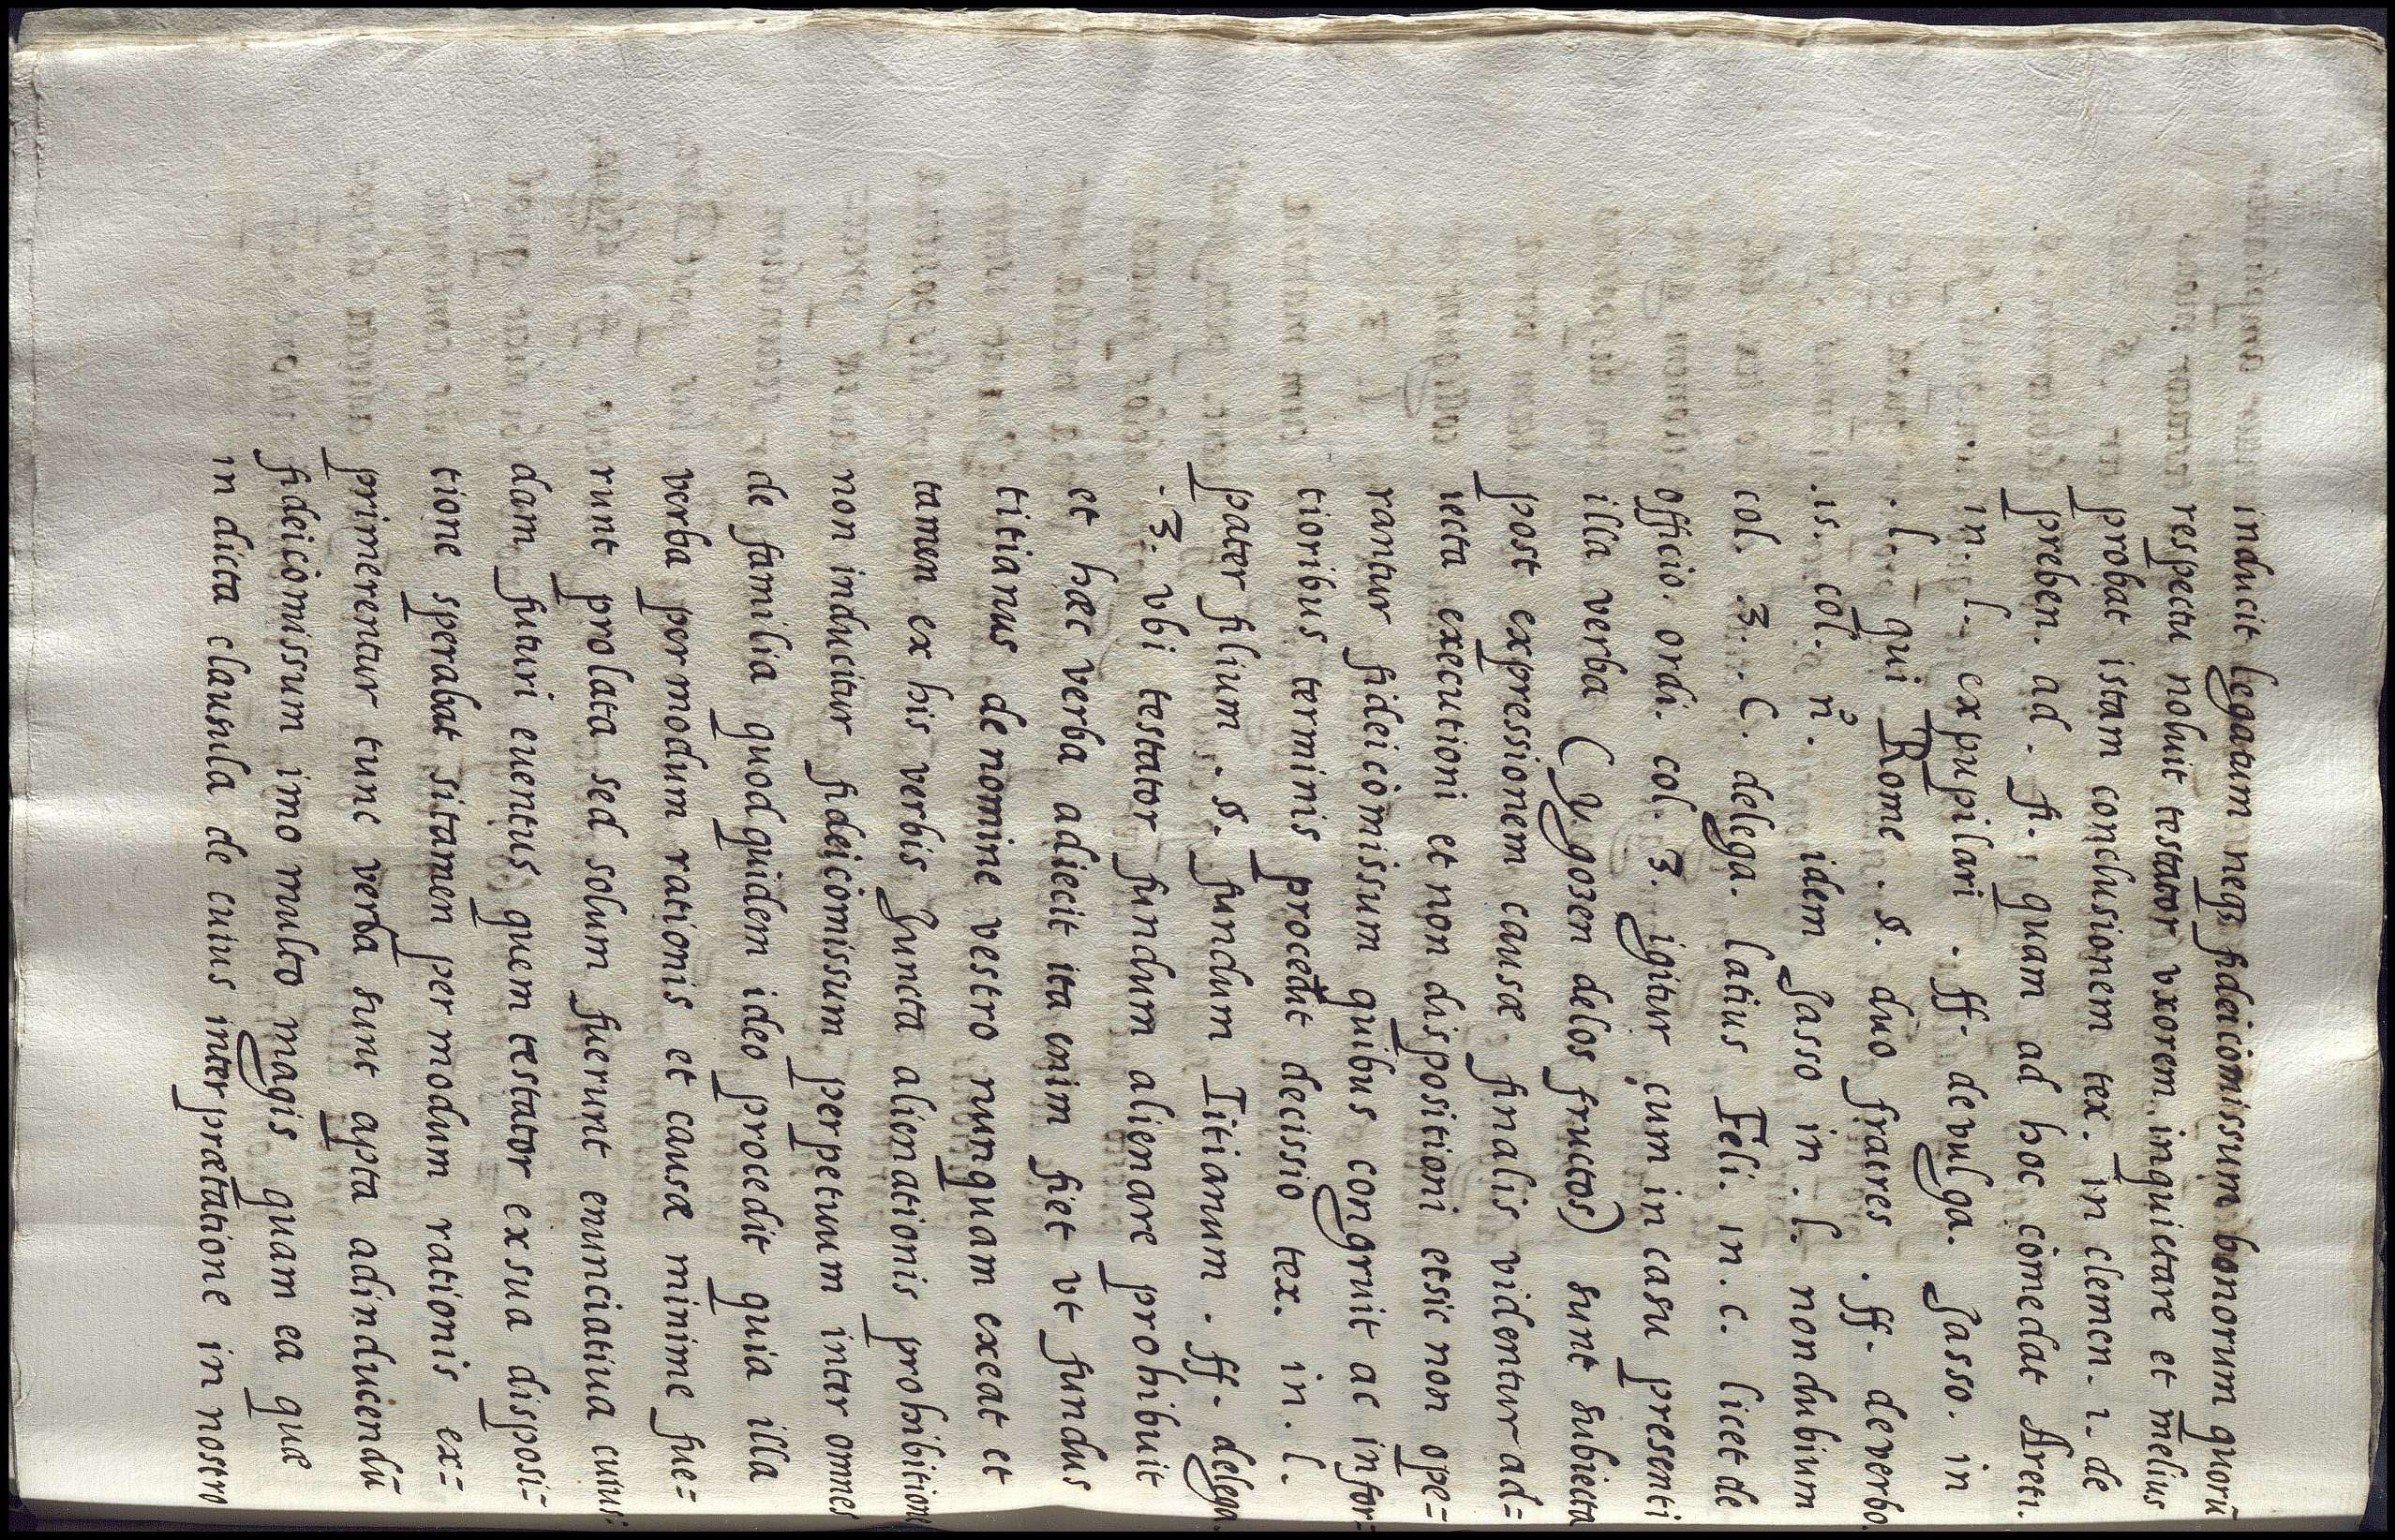 inducit legatum neqз fideicòmissum bonorum quorū
respectu noluit testator vxorem inquietare et melius
probat istam conclusionem tex. in clemen. 1. de
preben. ad. fi. quam ad hoc còmedat Areti.
in. l. ex pupilari . ff. de vulga. Jasso. in
. l. qui Rome . s. duo fratres . ff. de verbo.
.15. còl. nº. idem Jasso in. l. non dubium
col. 3. C. delega. latius Feli. in. c. licet de
officio. ordi. col. 3. igitur cum in casu presenti
illa verba (y gozen delos fructos) sunt subiecta
post expressionem causæ finalis videntur ad=
iecta executioni et non dispositioni et sic non ope=
rantur fideicòmissum quibus congruit ac infor=
tioribus terminis procedit decissio tex. in. l.
pater filium . s. fundum Titianum . ff. delega.
.3. vbi testator fundum alienare prohibuit
et hæc verba adiecit ita enim fiet vt fundus
titianus de nomine vestro nunquam exeat et
tamen ex his verbis Juncta alienationis prohibitione
non inducitur fideicòmissum perpetuum inter omnes
de familia quod quidem ideo procedit quia illa
verba per modum rationis et causæ minime fue=
runt prolata sed solum fuerunt enunciatiua cuius=
dam futuri euentus quem testator ex sua disposi=
tione sperabat si tamen per modum rationis ex=
primerentur tunc verba sunt apta ad inducendū
fideicòmissum imo multo magis quam ea quæ
in dicta clausula de cuius interprætatione in nostro